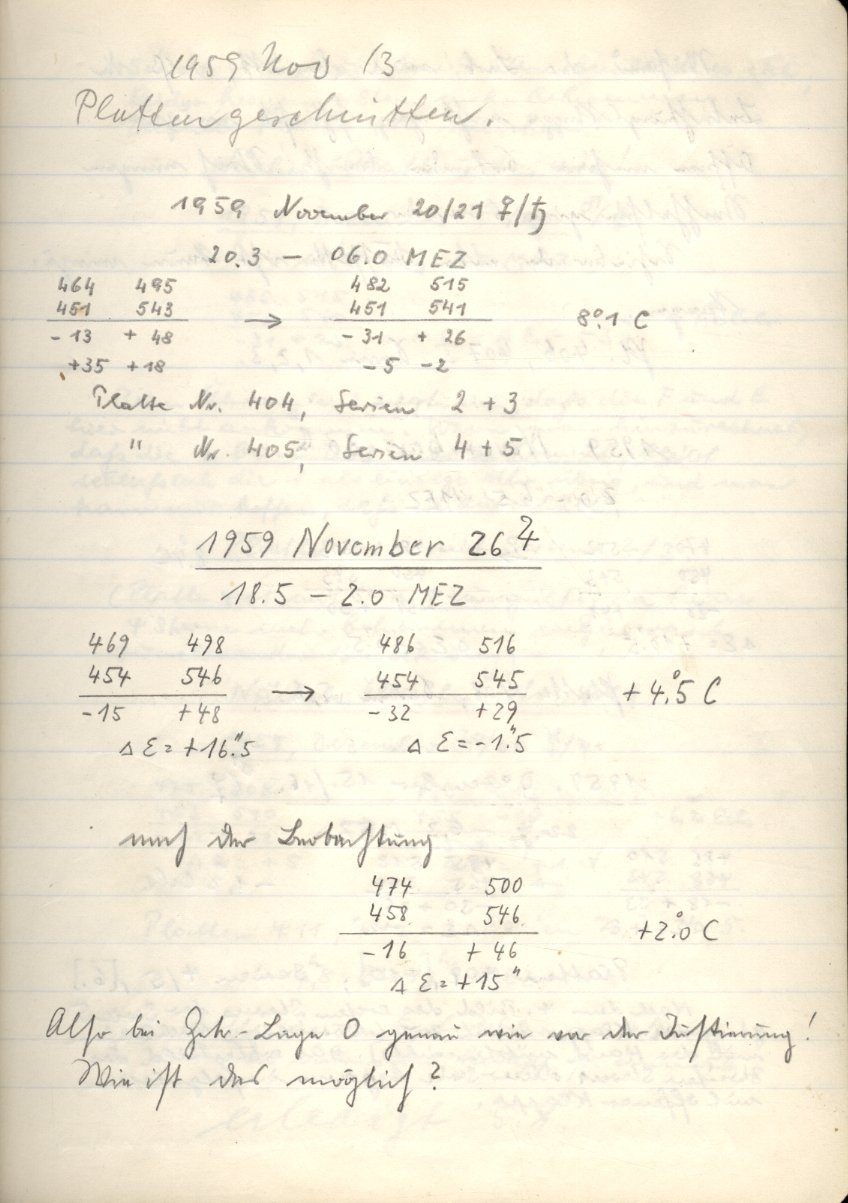 1959 Nov 13
Platten geschnitten.
1959 November 20/21 ♀/♄
20.3 — 06.0 MEZ
464 495 482 515
451 543 451 541
-13 +48 → -31 +26 8°.1 C
+35 +18 -5 -2
Platte Nr. 404, Serien 2 + 3
" Nr. 405, Serien 4 + 5
1959 November 26 ♃
18.5 — 2.0 MEZ
469 498 486 516
454 546 → 454 545 +4°.5 C
-15 +48 -32 +29
Δ Ɛ = +16".5 Δ Ɛ = -1".5
nach der Beobachtung
474 500
458 546
-16 +46 +2°.0 C
Δ Ɛ = +15"
Also bei Ztr.-Lage O genau wie vor der Justierung!
Wie ist das möglich?
erledigt